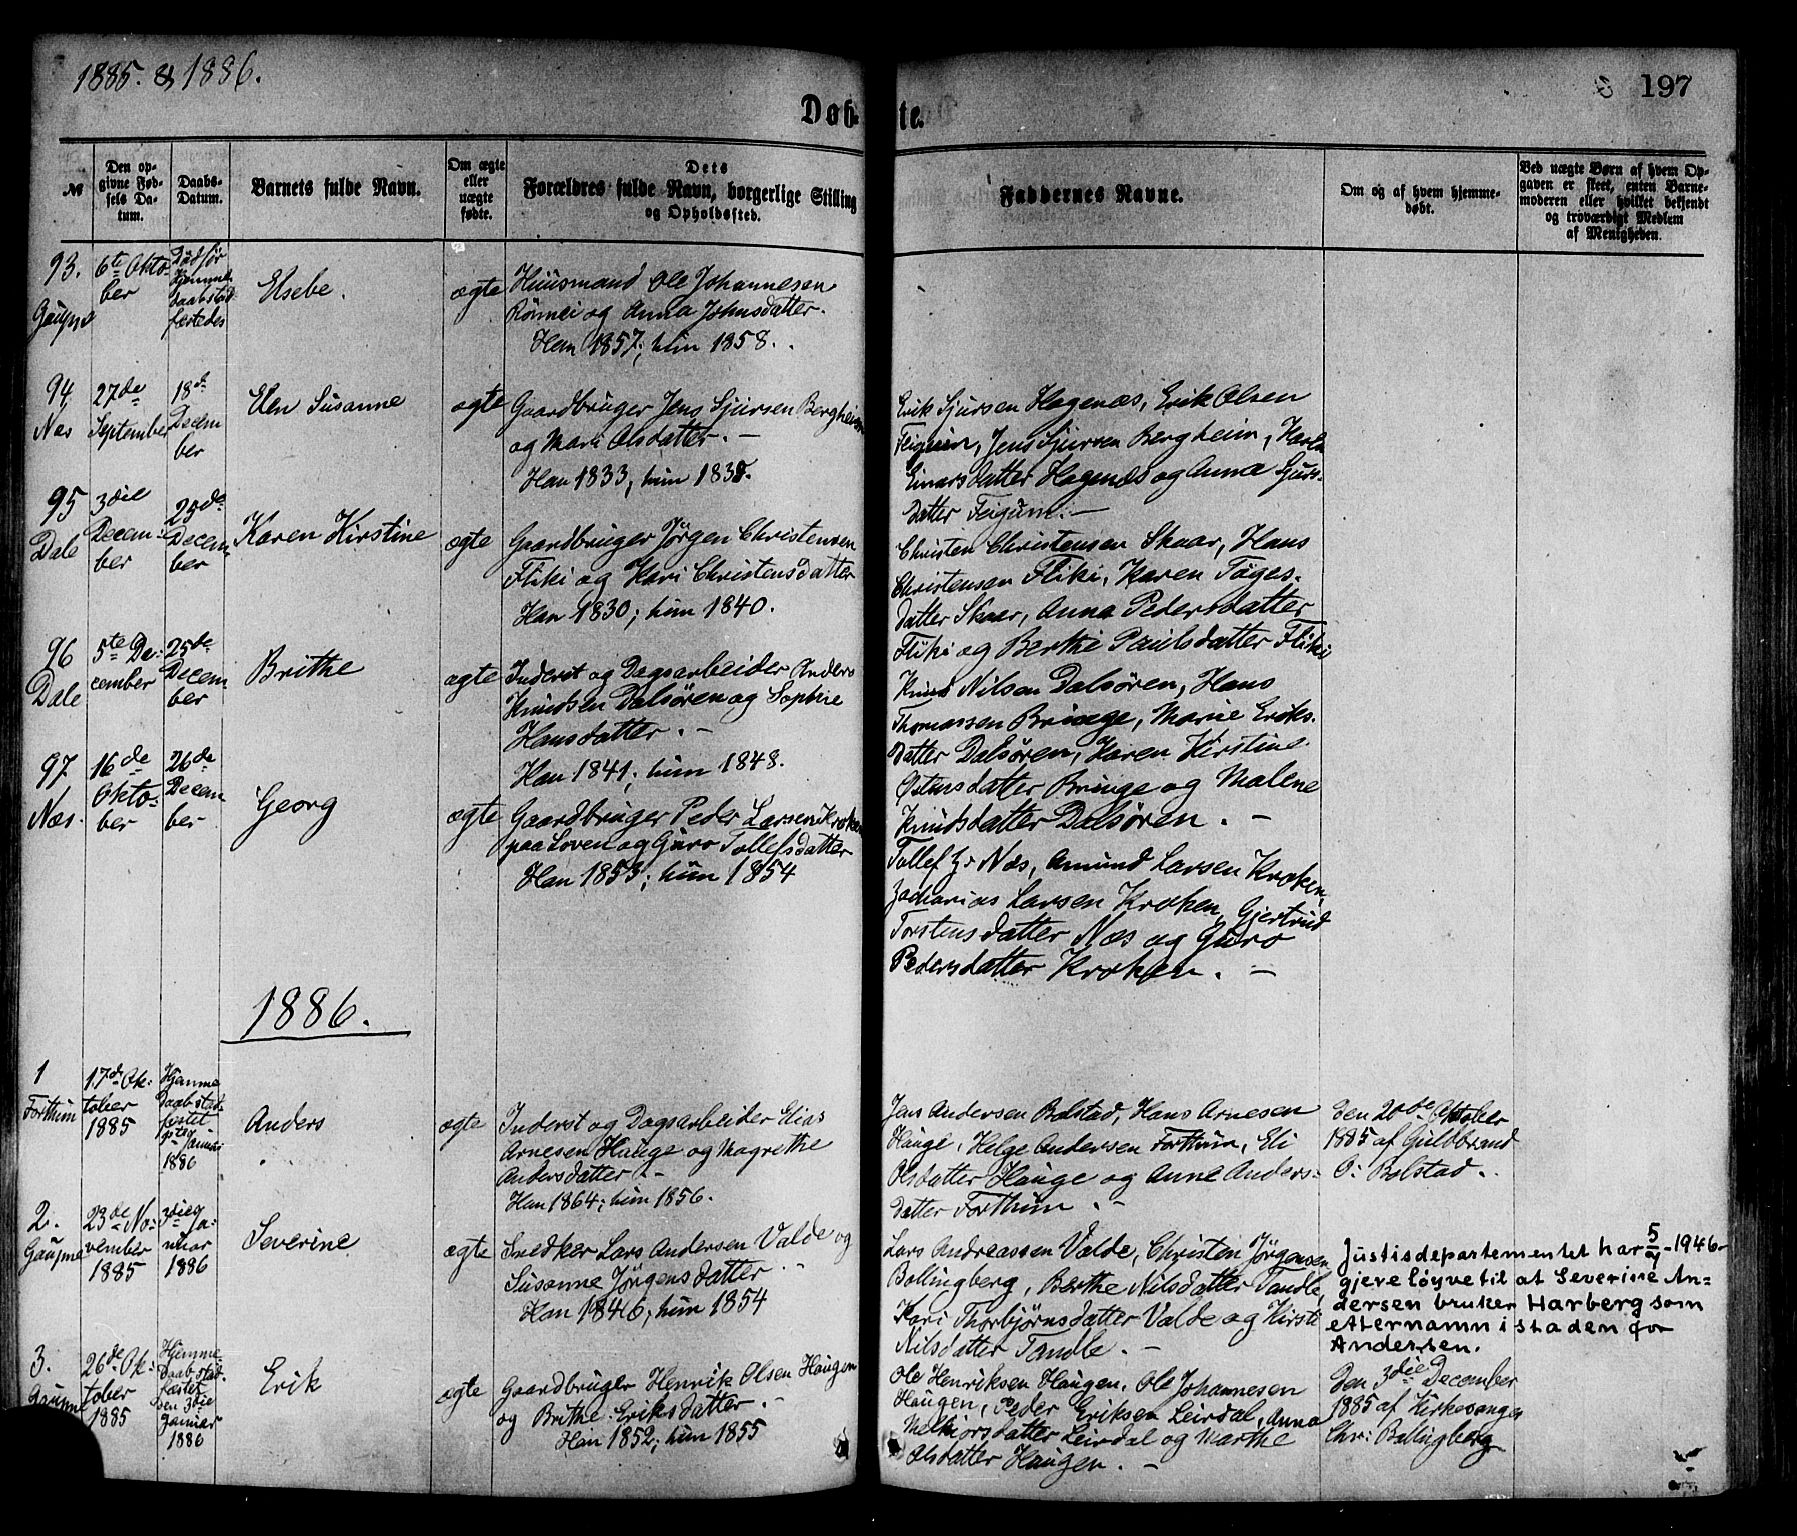 1885. & 1886.
197
Døbte.
№
Den opgivne Fødsels Datum.
Daabs-Datum.
Barnets fulde Navn.
Om ægte eller uægte fødte.
Dets Forældres fulde Navn, borgerlige Stilling og Opholdssted.
Faddernes Navne.
Om og af hvem hjemmedøbt.
Ved uægte Børn af hvem Opgaven er skeet, enten Barnemoderen eller hvilket bekjendt og troværdigt Medlem af Menigheden.
93.
Gaupne
6te Okto-
ber
Død før
Hjemme-
daabstad-
festedes
Elsebe.
ægte
Huusmand Ole Johannesen
Rønnei og Anna Johnsdatter.
Han 1857; hun 1858.
94
Næs
27de
September
18de
Decem
ber
Elen Susanne
ægte
Gaardbruger Jens Sjursen Bergheim
og Mari Olsdatter. —
Han 1833, hun 1838.
Erik Sjursen Hagenæs, Erik Olsen
Feigum, Jens Sjursen Bergheim, Karla
Einarsdatter Hagenæs og Anna Sjurs-
datter Feigum. —
95
Dale
3die
Decem-
ber
25de
Decem
ber
Karen Kirstine
ægte
Gaardbruger Jørgen Christensen
Fliki og Kari Christensdatter
Han 1830; hun 1840.
Christen Christensen Skaar, Hans
Christensen Fliki, Karen Tøges-
datter Skaar, Anna Pedersdatter
Fliki og Berthe Paulsdatter Fliki
96
Dale
5te De-
cember
25de
Decem
ber
Brithe
ægte
Inderst og Dagsarbeider Anders
Knudsen Dalsøren og Sophie
Hansdatter. —
Han 1841; hun 1848.
Knud Nilsen Dalsøren, Hans
Thomassen Bringe, Marie Eriks-
datter Dalsøren, Karen Kirstine
Ostensdatter Bringe og Malene
Knudsdatter Dalsøren. —
97
Næs.
16de
Okto-
ber
26de
Decem
ber
Georg
ægte
Gaardbruger Peder Larsen Kroken
paa Loven og Guro Tollefsdatter
Han 1853; hun 1854
Tollef Z. Næs, Amund Larsen Kroken,
Zacharias Larsen Kroken, Gjertrud
Torstensdatter Næs og Guro
Pedersdatter Kroken. —
1886.
1
Forthun
17de Ok-
tober
1885
Hjemme
Daabstad-
festet
6te Januar
1886
Anders
ægte
Inderst og Dagsarbeider Elias
Arnesen Hauge og Magrethe
Andersdatter. —
Han 1864; hun 1856.
Jens Andersen Bolstad, Hans Arnesen
Hauge, Helge Andersen Forthun, Eli
Olsdatter Hauge og Anne Anders-
datter Forthun. —
Den 20de Oktober
1885 af Guldbrand
O. Bolstad.
2.
Gaupne
23de No-
vember
1885
3die Ja-
nuar
1886
Severine
ægte
Snedker Lars Andersen Valde og
Susanne Jørgensdatter
Han 1846; hun 1854
Lars Andreassen Valde, Christen Jørgensen
Bollingberg, Berthe Nilsdatter Tandle,
Kari Thorbjørnsdatter Valde og Kirsti
Nilsdatter Tandle. —
Justisdepartementet har 5/7 - 1946 -
gjeve løyve til at Severine An-
dersen bruker Harberg som
etternamn i staden for
Andersen.
3.
Gaupne
26de Ok-
tober
1885
Hjemme
Daabstad-
fæstet
den 3die
Januar
1886
Erik
ægte
Gaardbruger Henrik Olsen Haugen
og Brithe Eriksdatter. —
Han 1852; hun 1855
Ole Henriksen Haugen, Ole Johannesen
Haugen, Peder Eriksen Leirdal, Anna
Melkiorsdatter Leirdal og Marthe
Olsdatter Haugen. —
Den 3die December
1885 af Kirkesanger
Chr. Bollingberg